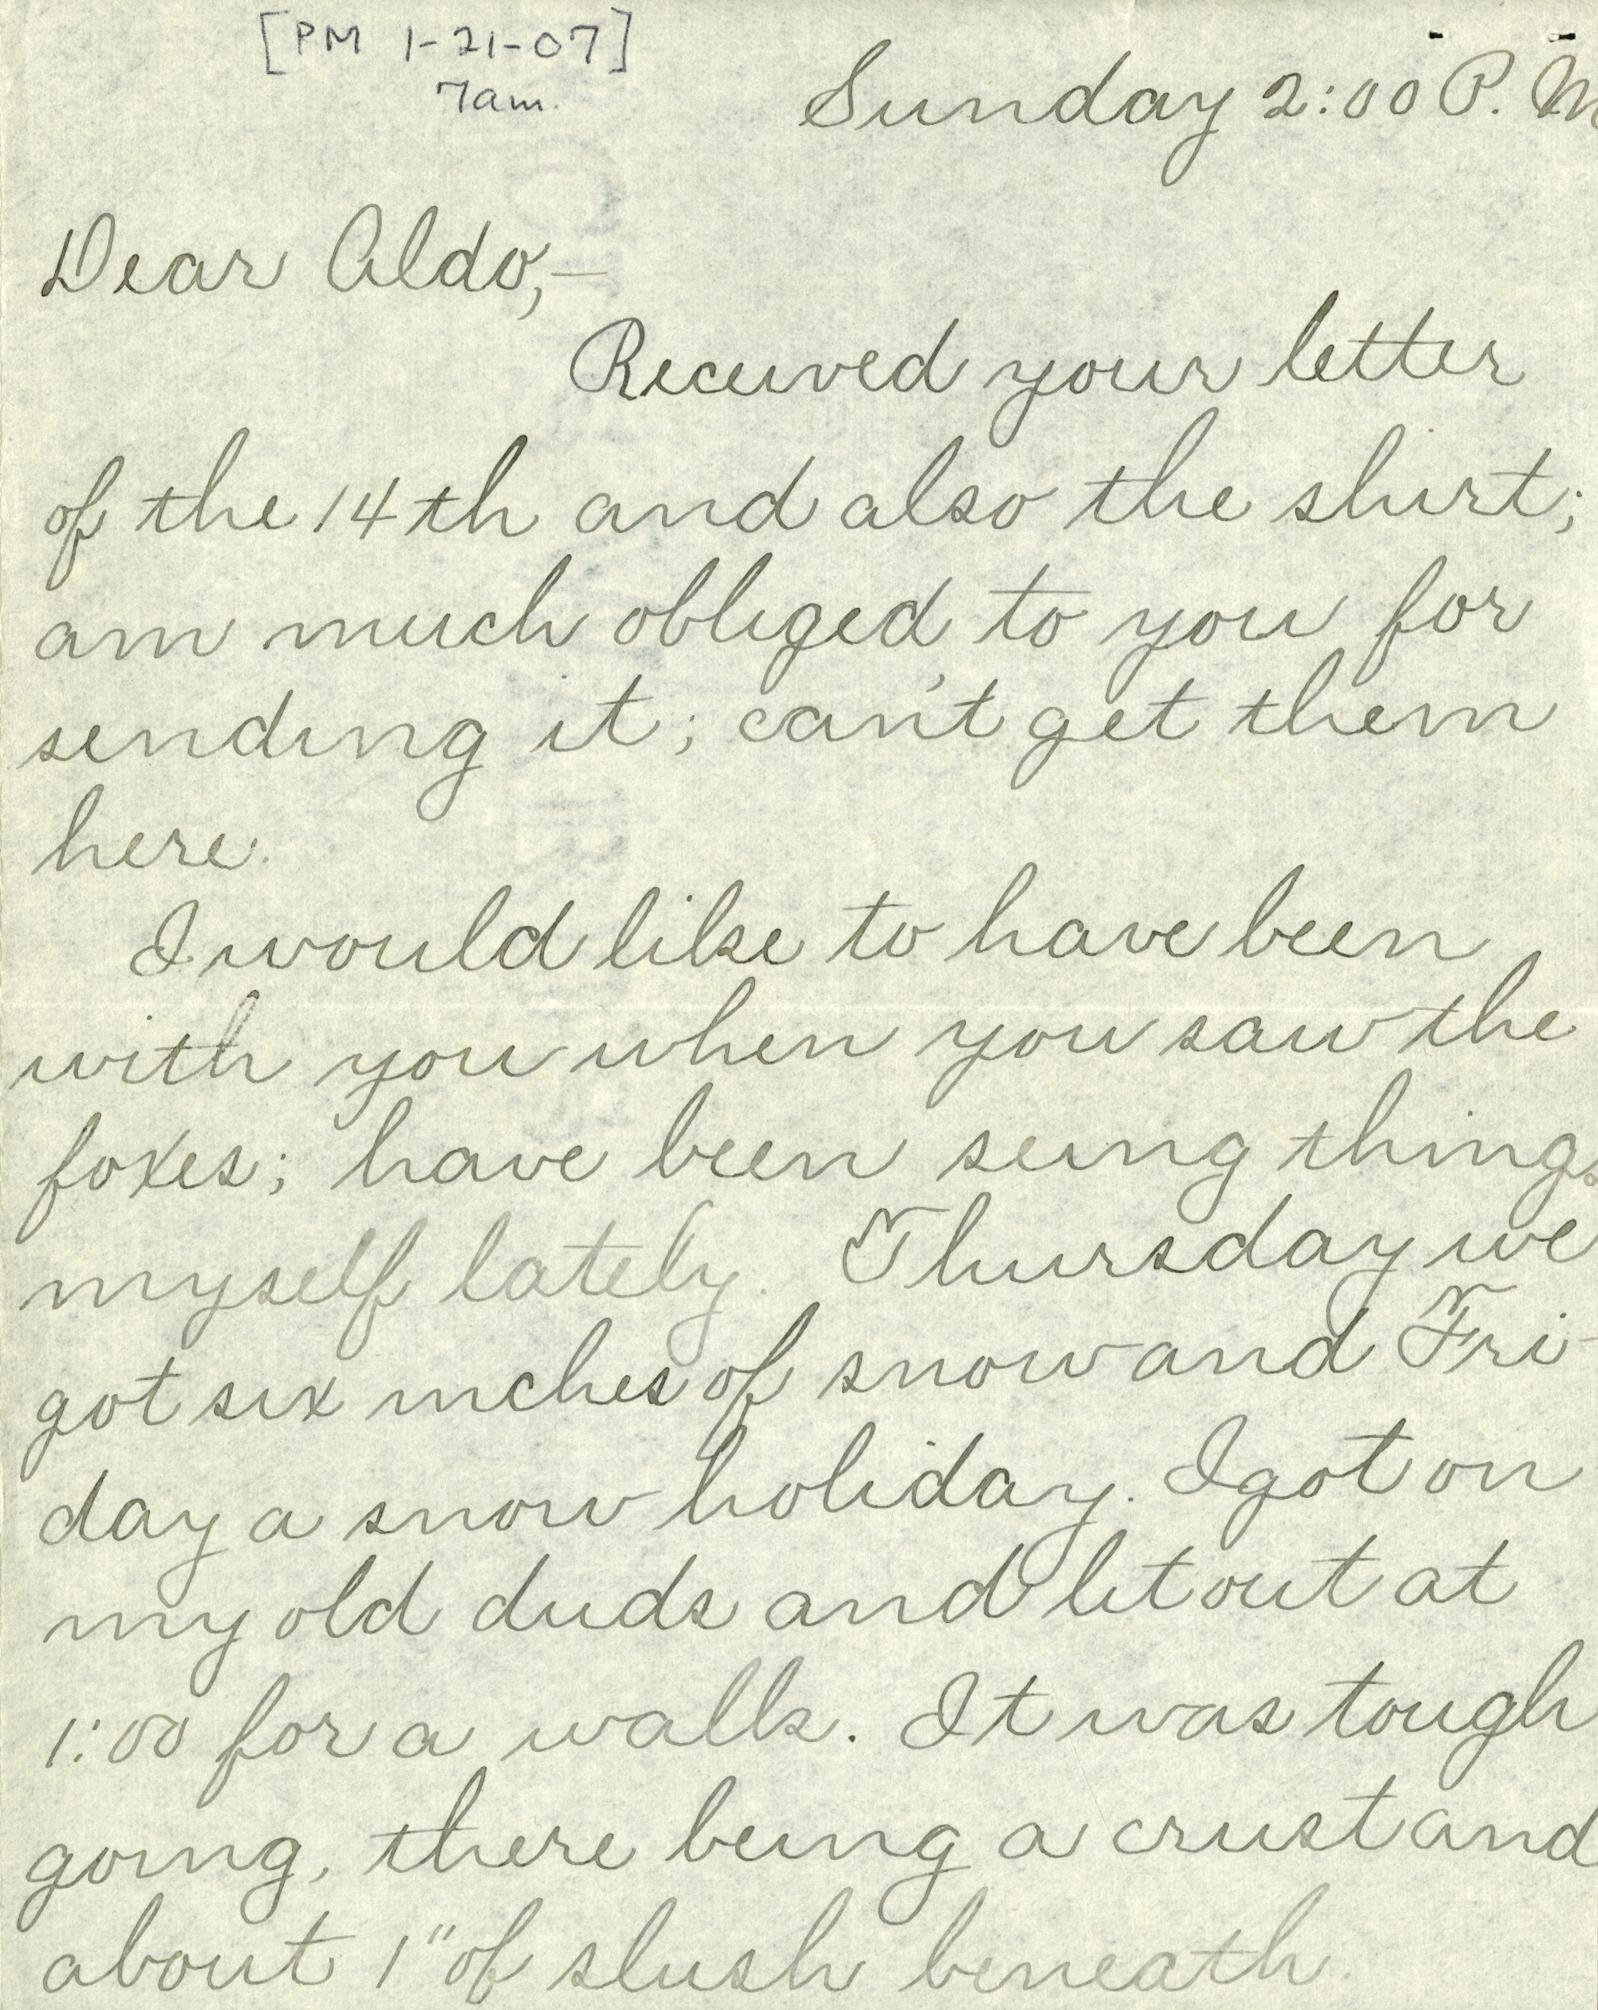 [PM 1-21-07]
7am.
Sunday 2:00 P. M
Dear Aldo,—
Received your letter
of the 14th and also the shirt;
am much obliged to you for
sending it; can't get them
here.
I would like to have been
with you when you saw the
foxes; have been seeing things
myself lately. Thursday we
got six inches of snow and Fri-
day a snow holiday. I got on
my old duds and lit out at
1:00 for a walk. It was tough
going, there being a crust and
about 1" of slush beneath.